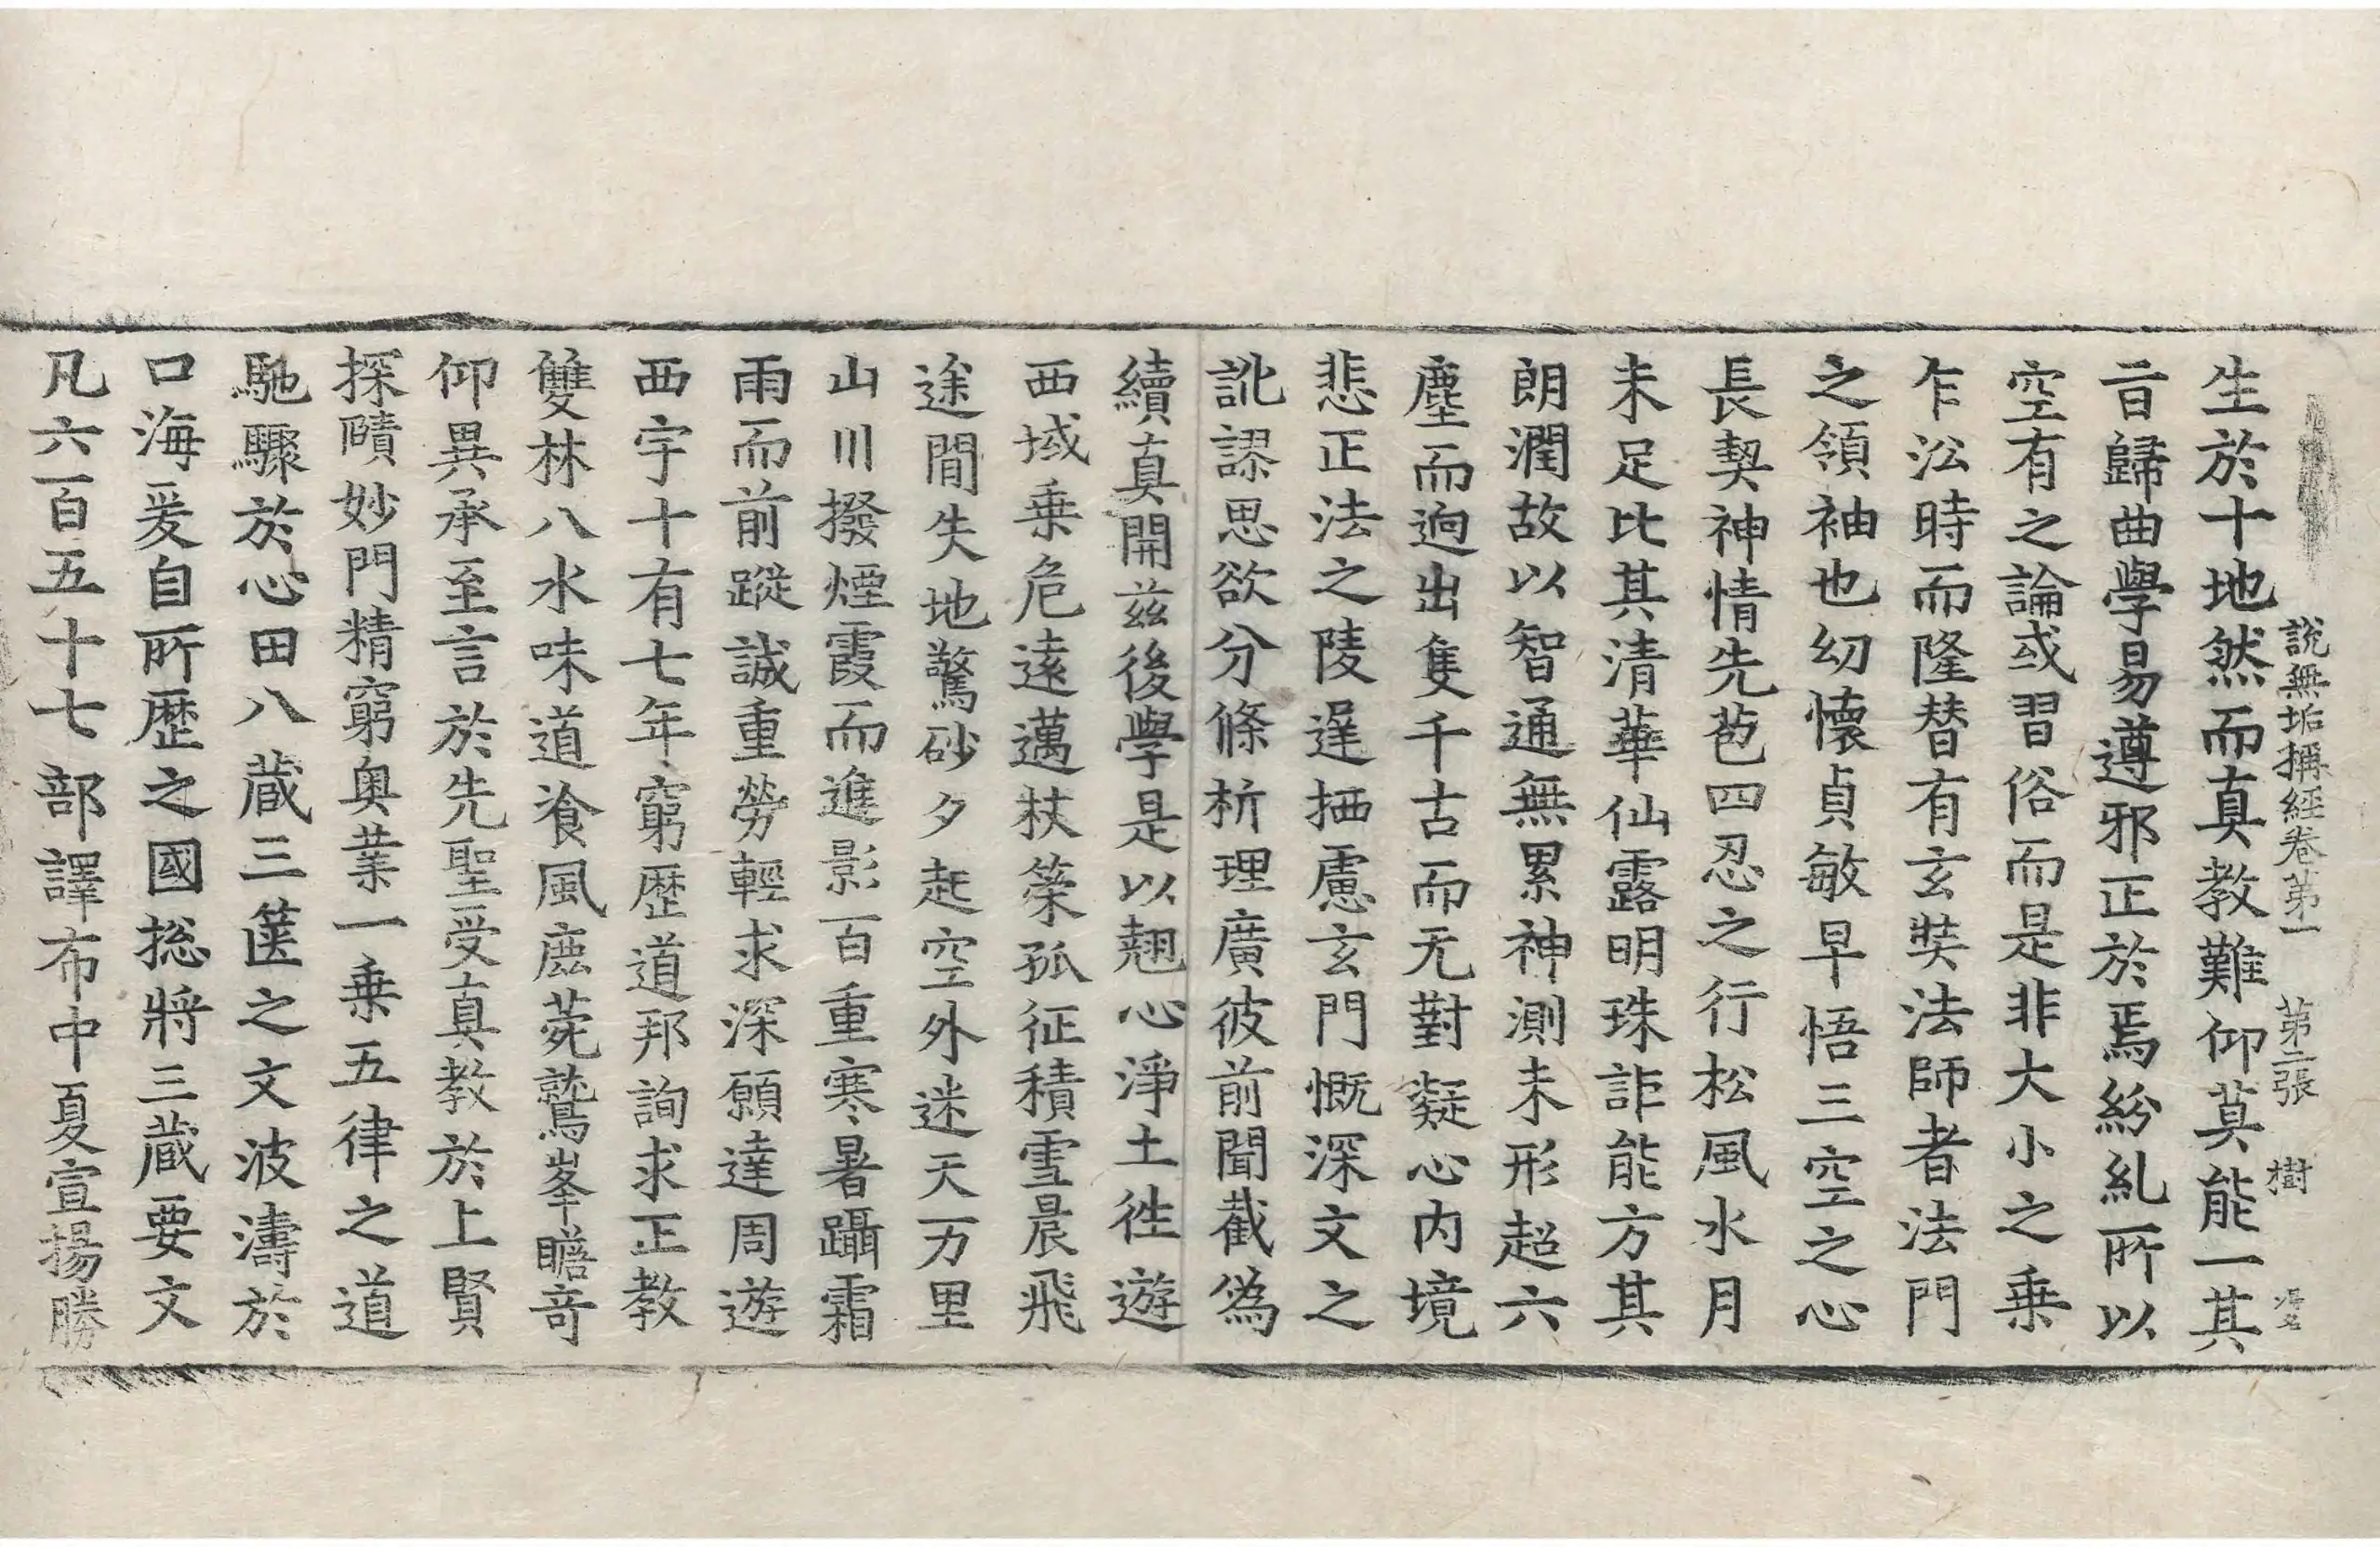 說無垢稱經卷第一 第二張 樹
生於十地然而真教難仰莫能一其
㫖歸曲學易遵邪正於焉紛糺所以
空有之論或習俗而是非大小之乗
乍㳂時而隆替有玄奘法師者法門
之領袖也幼懷貞敏早悟三空之心
長契神情先苞四忍之行松風水月
未足比其清華仙露明珠詎能方其
朗潤故以智通無累神測未形超六
塵而逈出隻千古而无對凝心內境
悲正法之陵遅栖慮玄門慨深文之
訛謬思欲分條析理廣彼前聞截僞
續真開兹後學是以翹心淨土徃遊
西域乗危遠邁杖䇿孤征積雪晨飛
途閒失地驚砂夕起空外迷天万里
山川撥煙霞而進影百重寒暑躡霜
雨而前蹤誠重勞輕求深願達周遊
西宇十有七年窮歷道邦詢求正教
雙林八水味道飡風鹿菀鷲峯瞻竒
仰異承至言於先聖受真教於上賢
探賾妙門精窮奥業一乗五律之道
馳驟於心田八蔵三篋之文波濤於
口海爰自所歷之國揔將三蔵要文
凡六百五十七部譯布中夏宣揚勝